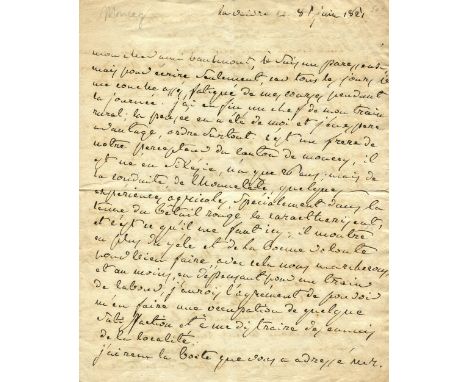 Moncey
8 juin 1821
mon cher ami, je suis un paresseux
mais pour écrire seulement, car tous les jours je
me couche assez fatigué de mes courses pendant
la journée. j'ai enfin un chef de mon train
rural; la personne de moi et j'espère
avantage, ordre surtout c'est un frère de
notre percepteur du canton de moncey, il
est né en n'a que 26 ans, mais de
la conduite, de l'honnêteté, quelque
expérience agricole, spécialement dans la
tenue du bétail rouge le caractérisent,
et c'est ce qu'il me faut ici; il montre
en plus du zèle et de la bonne volonté
pour bien faire, avec cela nous marcherons,
et au moins, en dépensant pour un train
de labour j'aurois l'agrément de pouvoir
m'en faire une occupation de quelque
satisfaction et à me distraire des ennuis
de la localité.
j'ai reçu la boite que vous a adressé